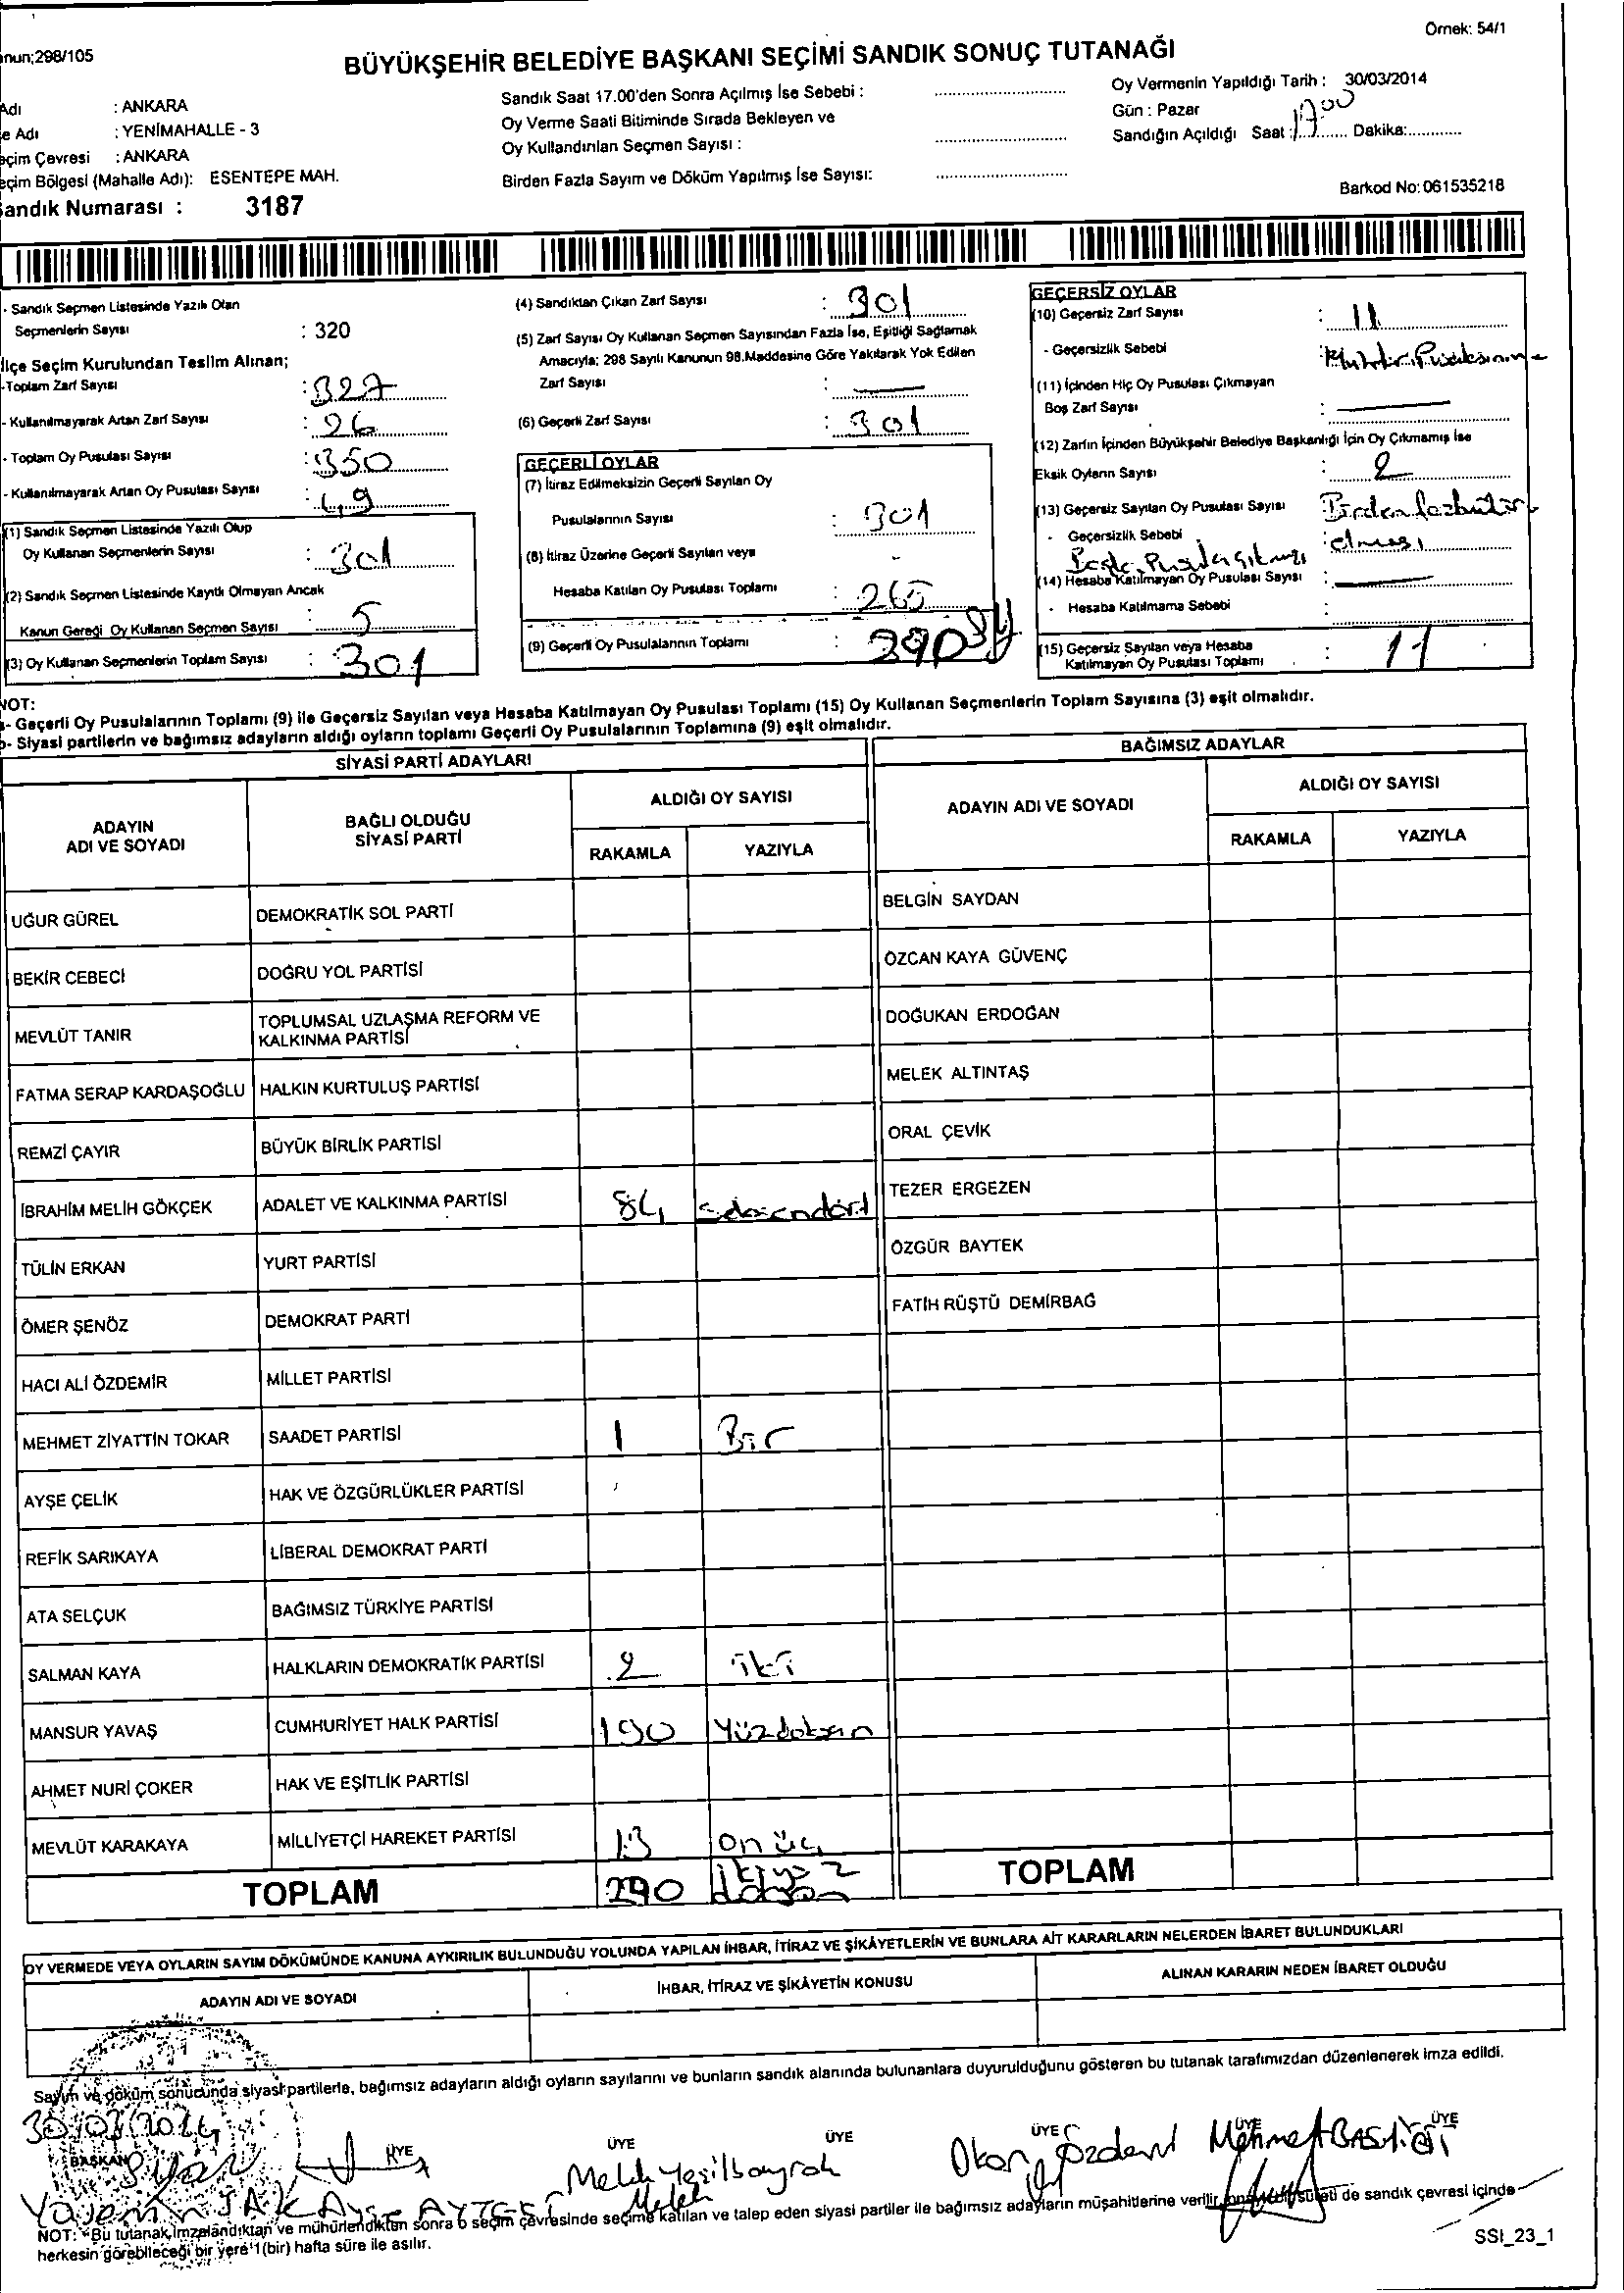 Örnek: 54/1
anun;298/105
BÜYÜKŞEHİR BELEDİYE BAŞKANI SEÇİMİ SANDIK SONUÇ TUTANAĞI
Adı : ANKARA
e Adı : YENİMAHALLE - 3
eçim Çevresi : ANKARA
eçim Bölgesi (Mahalle Adı): ESENTEPE MAH.
Sandık Numarası : 3187
Sandık Saat 17.00'den Sonra Açılmış İse Sebebi :
Oy Verme Saati Bitiminde Sırada Bekleyen ve
Oy Kullandırılan Seçmen Sayısı :
Birden Fazla Sayım ve Döküm Yapılmış İse Sayısı:
Oy Vermenin Yapıldığı Tarih : 30/03/2014
Gün : Pazar
Sandığın Açıldığı Saat : 17.00 Dakika:
Barkod No: 061535218
- Sandık Seçmen Listesinde Yazılı Olan
Seçmenlerin Sayısı : 320
İlçe Seçim Kurulundan Teslim Alınan;
-Toplam Zarf Sayısı : 327
- Kullanılmayarak Artan Zarf Sayısı : 26
- Toplam Oy Pusulası Sayısı : 350
- Kullanılmayarak Artan Oy Pusulası Sayısı : 49
(1) Sandık Seçmen Listesinde Yazılı Olup
Oy Kullanan Seçmenlerin Sayısı : 301
(2) Sandık Seçmen Listesinde Kayıtlı Olmayan Ancak
Kanun Gereği Oy Kullanan Seçmen Sayısı : 5
(3) Oy Kullanan Seçmenlerin Toplam Sayısı : 301
(4) Sandıktan Çıkan Zarf Sayısı : 301
(5) Zarf Sayısı Oy Kullanan Seçmen Sayısından Fazla İse, Eşitliği Sağlamak
Amacıyla; 298 Sayılı Kanunun 98.Maddesine Göre Yakılarak Yok Edilen
Zarf Sayısı : —
(6) Geçerli Zarf Sayısı : 301
GEÇERLİ OYLAR
(7) İtiraz Edilmeksizin Geçerli Sayılan Oy
Pusulalarının Sayısı : 301
(8) İtiraz Üzerine Geçerli Sayılan veya -
Hesaba Katılan Oy Pusulası Toplamı : 265
(9) Geçerli Oy Pusulalarının Toplamı : 290
GEÇERSİZ OYLAR
(10) Geçersiz Zarf Sayısı : 11
- Geçersizlik Sebebi : Muhtar Pusulasının
(11) İçinden Hiç Oy Pusulası Çıkmayan
Boş Zarf Sayısı : —
(12) Zarfın İçinden Büyükşehir Belediye Başkanlığı İçin Oy Çıkmamış İse
Eksik Oyların Sayısı : 2
(13) Geçersiz Sayılan Oy Pusulası Sayısı Birden fazla
- Geçersizlik Sebebi : olması
Başka Pusula çıkması
(14) Hesaba Katılmayan Oy Pusulası Sayısı : —
- Hesaba Katılmama Sebebi :
(15) Geçersiz Sayılan veya Hesaba
Katılmayan Oy Pusulası Toplamı : 11
NOT:
a- Geçerli Oy Pusulalarının Toplamı (9) ile Geçersiz Sayılan veya Hesaba Katılmayan Oy Pusulası Toplamı (15) Oy Kullanan Seçmenlerin Toplam Sayısına (3) eşit olmalıdır.
b- Siyasi partilerin ve bağımsız adayların aldığı oyların toplamı Geçerli Oy Pusulalarının Toplamına (9) eşit olmalıdır.
SİYASİ PARTİ ADAYLARI
ADAYIN
ADI VE SOYADI
BAĞLI OLDUĞU
SİYASİ PARTİ
ALDIĞI OY SAYISI
RAKAMLA YAZIYLA
UĞUR GÜREL DEMOKRATİK SOL PARTİ
BEKİR CEBECİ DOĞRU YOL PARTİSİ
MEVLÜT TANIR TOPLUMSAL UZLAŞMA REFORM VE
KALKINMA PARTİSİ
FATMA SERAP KARDAŞOĞLU HALKIN KURTULUŞ PARTİSİ
REMZİ ÇAYIR BÜYÜK BİRLİK PARTİSİ
İBRAHİM MELİH GÖKÇEK ADALET VE KALKINMA PARTİSİ 84 seksendört
TÜLİN ERKAN YURT PARTİSİ
ÖMER ŞENÖZ DEMOKRAT PARTİ
HACI ALİ ÖZDEMİR MİLLET PARTİSİ
MEHMET ZİYATTİN TOKAR SAADET PARTİSİ 1 Bir
AYŞE ÇELİK HAK VE ÖZGÜRLÜKLER PARTİSİ
REFİK SARIKAYA LİBERAL DEMOKRAT PARTİ
ATA SELÇUK BAĞIMSIZ TÜRKİYE PARTİSİ
SALMAN KAYA HALKLARIN DEMOKRATİK PARTİSİ 2 iki
MANSUR YAVAŞ CUMHURİYET HALK PARTİSİ 190 Yüzdoksan
AHMET NURİ ÇOKER HAK VE EŞİTLİK PARTİSİ
MEVLÜT KARAKAYA MİLLİYETÇİ HAREKET PARTİSİ 13 onüç
TOPLAM 290 ikiyüz doksan
BAĞIMSIZ ADAYLAR
ADAYIN ADI VE SOYADI
ALDIĞI OY SAYISI
RAKAMLA YAZIYLA
BELGİN SAYDAN
ÖZCAN KAYA GÜVENÇ
DOĞUKAN ERDOĞAN
MELEK ALTINTAŞ
ORAL ÇEVİK
TEZER ERGEZEN
ÖZGÜR BAYTEK
FATİH RÜŞTÜ DEMİRBAĞ
TOPLAM
OY VERMEDE VEYA OYLARIN SAYIM DÖKÜMÜNDE KANUNA AYKIRILIK BULUNDUĞU YOLUNDA YAPILAN İHBAR, İTİRAZ VE ŞİKÂYETLERİN VE BUNLARA AİT KARARLARIN NELERDEN İBARET BULUNDUKLARI
ADAYIN ADI VE SOYADI İHBAR, İTİRAZ VE ŞİKÂYETİN KONUSU ALINAN KARARIN NEDEN İBARET OLDUĞU
Sayım ve döküm sonucunda siyasi partilerle, bağımsız adayların aldığı oyların sayılarını ve bunların sandık alanında bulunanlara duyurulduğunu gösteren bu tutanak tarafımızdan düzenlenerek imza edildi.
30/03/2014
BAŞKAN ÜYE ÜYE ÜYE ÜYE ÜYE ÜYE
Melek Yeşilbayrak Okan Özdemir Mehmet BASTIĞI
Yasemin Ayşe AYTEŞ Melek
NOT: Bu tutanak imzalandıktan ve mühürlendikten sonra o seçim çevresinde seçime katılan ve talep eden siyasi partiler ile bağımsız adayların müşahitlerine verilir, onaylı bir sureti de sandık çevresi içinde
herkesin görebileceği bir yere 1(bir) hafta süre ile asılır.
SSI_23_1